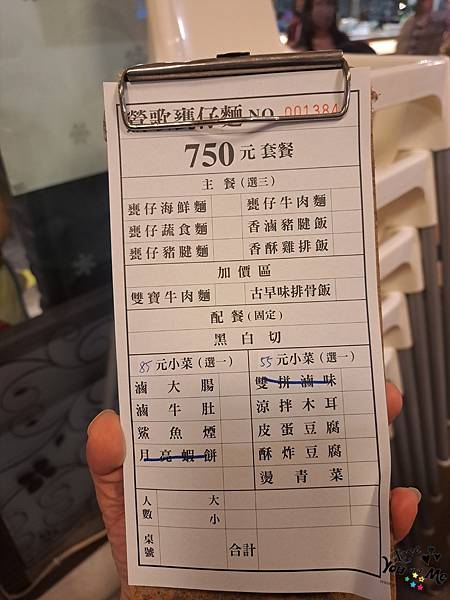 鶯歌甕仔麵 NO. 001384
750元套餐
主餐(選三)
甕仔海鮮麵 甕仔牛肉麵
甕仔蔬食麵 香滷豬腱飯
甕仔豬腱麵 香酥雞排飯
加價區
雙寶牛肉麵 古早味排骨飯
配餐(固定)
黑白切
85元小菜(選一) 55元小菜(選一)
滷大腸 雙拼滷味
滷牛肚 涼拌木耳
鯊魚煙 皮蛋豆腐
月亮蝦餅 酥炸豆腐
燙青菜
人數 大
小
桌號 合計
You Me